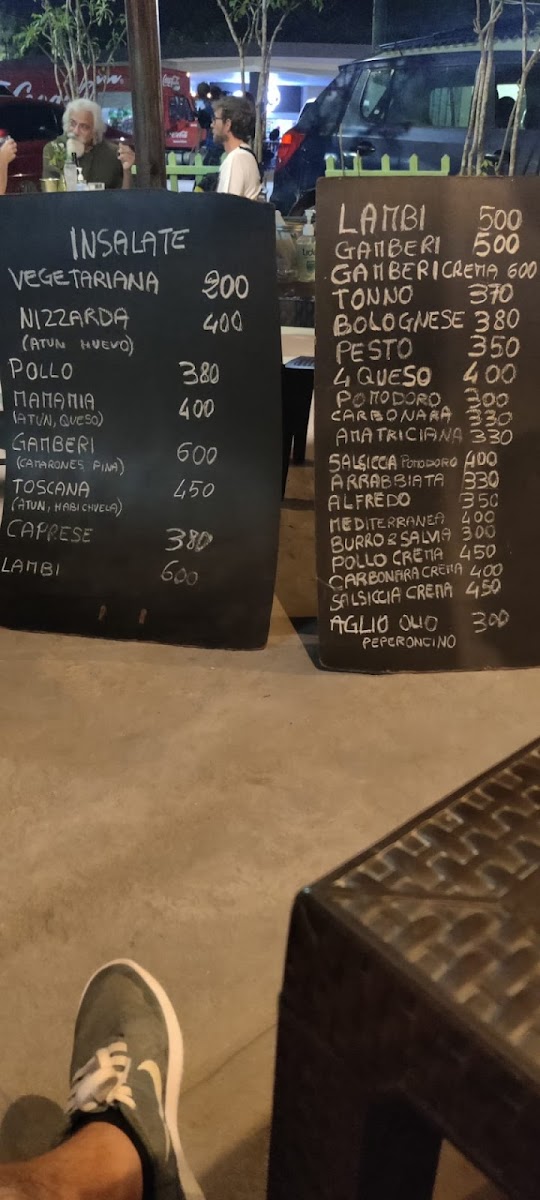 Coca-Cola
Coca-Cola
INSALATE
VEGETARIANA 200
NIZZARDA 400
(ATUN HUEVO)
POLLO 380
MAMAMIA 400
(ATUN, QUESO)
GAMBERI 600
(CAMARONES, PINA)
TOSCANA 450
(ATUN, HABICHUELA)
CAPRESE 380
LAMBI 600
LAMBI 500
GAMBERI 500
GAMBERI CREMA 600
TONNO 370
BOLOGNESE 380
PESTO 350
4 QUESO 400
POMODORO 300
CARBONARA 330
AMATRICIANA 330
SALSICCA POMODORO 400
ARRABBIATA 330
ALFREDO 350
MEDITERRANEA 400
BURRO & SALVIA 300
POLLO CREMA 450
CARBONARA CREMA 400
SALSICCIA CREMA 450
AGLIO OLIO 300
PEPERONCINO